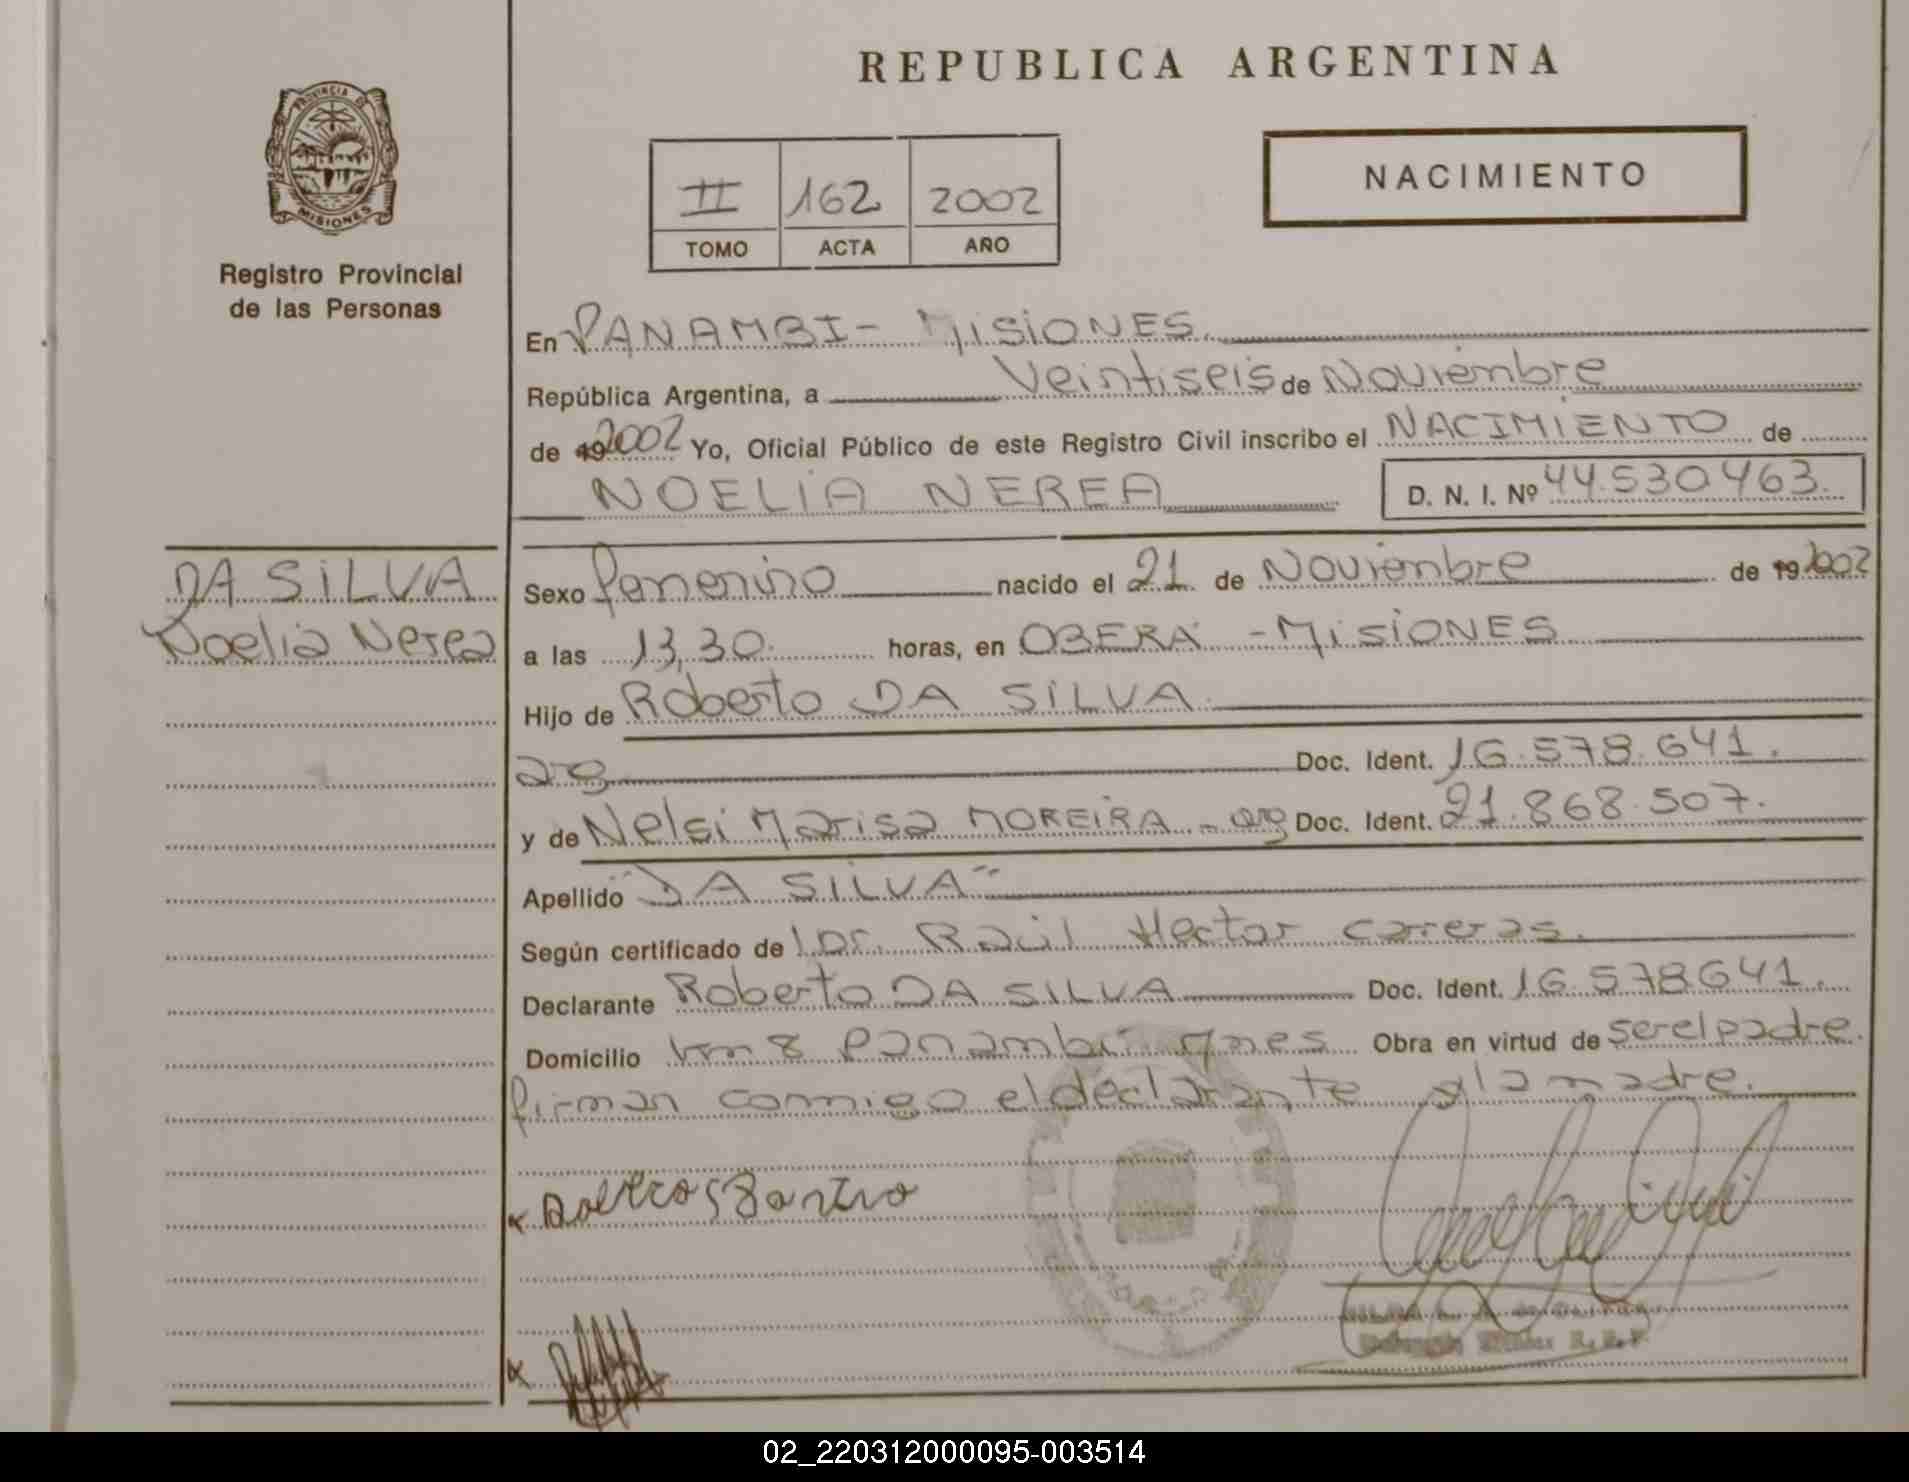 REPUBLICA ARGENTINA
PROVINCIA DE
MISIONES
Registro Provincial
de las Personas
II 162 2002
TOMO ACTA AÑO
NACIMIENTO
En PANAMBI - MISIONES.
República Argentina, a Veintiseis de Noviembre
de 19 2002 Yo, Oficial Público de este Registro Civil inscribo el NACIMIENTO de
NOELIA NEREA D. N. I. Nº 44.530463.
DA SILVA
Noelia Nerea
Sexo femenino nacido el 21 de Noviembre de 19 2002
a las 13,30. horas, en OBERA - MISIONES
Hijo de Roberto DA SILVA.
arg Doc. Ident. 16.578.641.
y de Nelsi Marisa MOREIRA - arg Doc. Ident. 21.868.507.
Apellido "DA SILVA"
Según certificado de Dr. Raúl Hector Carreras.
Declarante Roberto DA SILVA Doc. Ident. 16.578641.
Domicilio km 8 Panambi Mnes Obra en virtud de ser el padre.
firman conmigo el declarante y la madre.
02_220312000095-003514